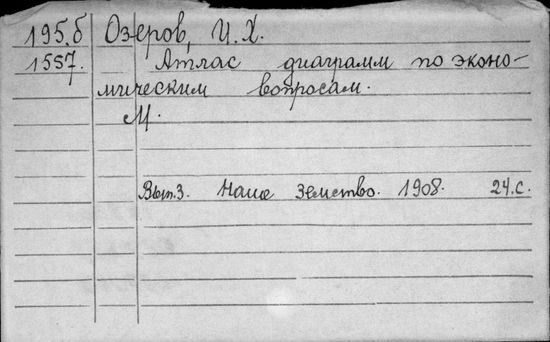 195.б Озеров, И. Х.
1557. Атлас диаграмм по эконо-
мическим вопросам.
М.
Вып.3. Наше земство. 1908. 24.с.